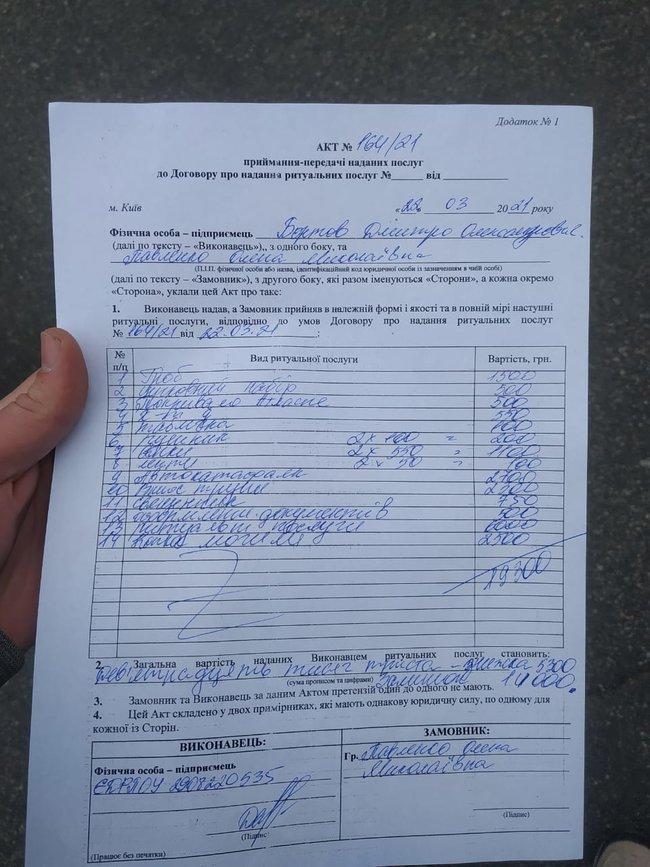 Додаток № 1
АКТ № 164/21
приймання-передачі наданих послуг
до Договору про надання ритуальних послуг №_____ від _________
м. Київ «22» 03 2021 року
Фізична особа – підприємець Дмитро Олександрович
(далі по тексту – «Виконавець»), з одного боку, та
Павленко Олена Миколаївна
(П.І.П. фізичної особи або назва, ідентифікаційний код юридичної особи із зазначенням в чиїй особі)
(далі по тексту – «Замовник»), з другого боку, які разом іменуються «Сторони», а кожна окремо
«Сторона», уклали цей Акт про таке:
1. Виконавець надав, а Замовник прийняв в належній формі і якості та в повній мірі наступні
ритуальні послуги, відповідно до умов Договору про надання ритуальних послуг
№ 164/21 від 22.03.21 ;
№ п/п Вид ритуальної послуги Вартість, грн.
1 Гроб 1500
2 набір 500
3 Покривало атласне 500
4 550
5
6 Рушник 2 х 100 = 200
7 Вінки 2 х 550 = 1100
8 Ленти 2 х 50 = 100
9 Автокатафалк 2700
10 Винос труни
11 Священник
12 Оформлення документів 500
13 Ритуальні послуги 6000
14 Копка могили 2500
19300
2. Загальна вартість наданих Виконавцем ритуальних послуг становить:
Дев'ятнадцять тисяч триста – 5300
(сума прописом та цифрами) Залишок 14000.
3. Замовник та Виконавець за даним Актом претензій один до одного не мають.
4. Цей Акт складено у двох примірниках, які мають однакову юридичну силу, по одному для
кожної із Сторін.
ВИКОНАВЕЦЬ:
Фізична особа – підприємець
ЄДРПОУ 2908220535
(Підпис)
(Працює без печатки)
ЗАМОВНИК:
Гр. Павленко Олена
Миколаївна
(Підпис)